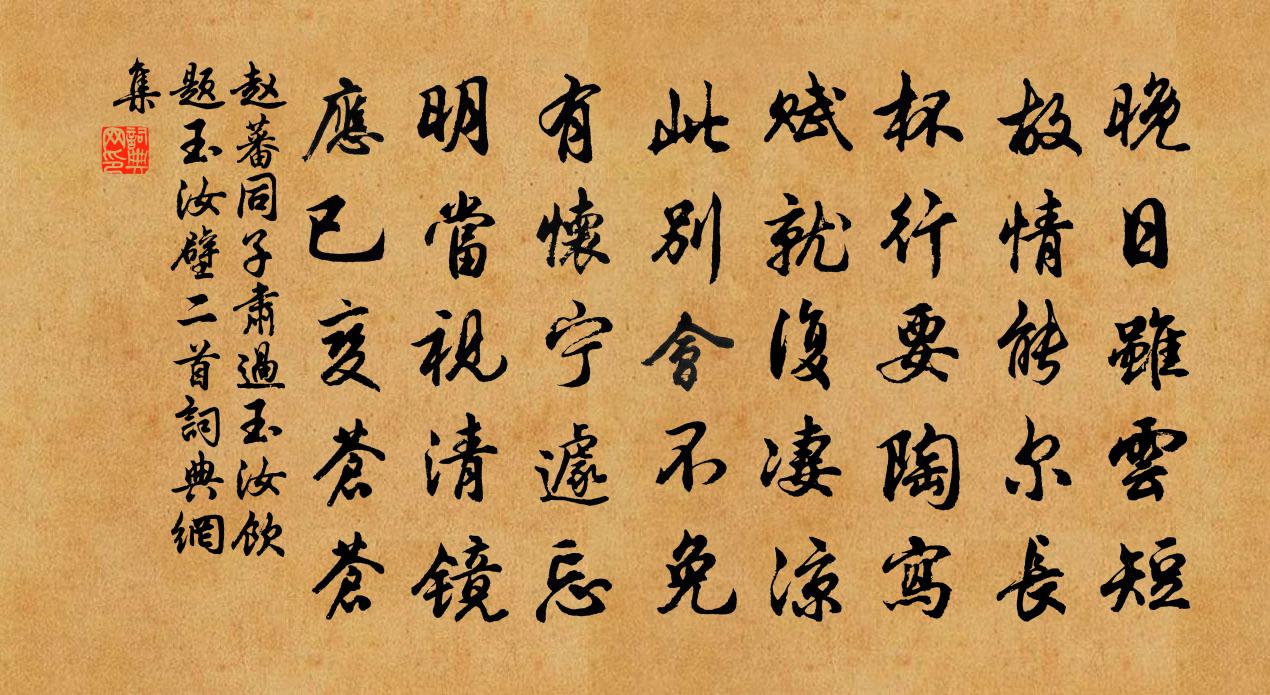 晚日雖雲短
故情能尔長
杯行要陶寫
賦就復凄涼
此別會不免
有懷宁遽忘
明當視清鏡
應已变蒼蒼
赵蕃同子肅過玉汝飲
题玉汝壁二首詞典網
集
詞典網印